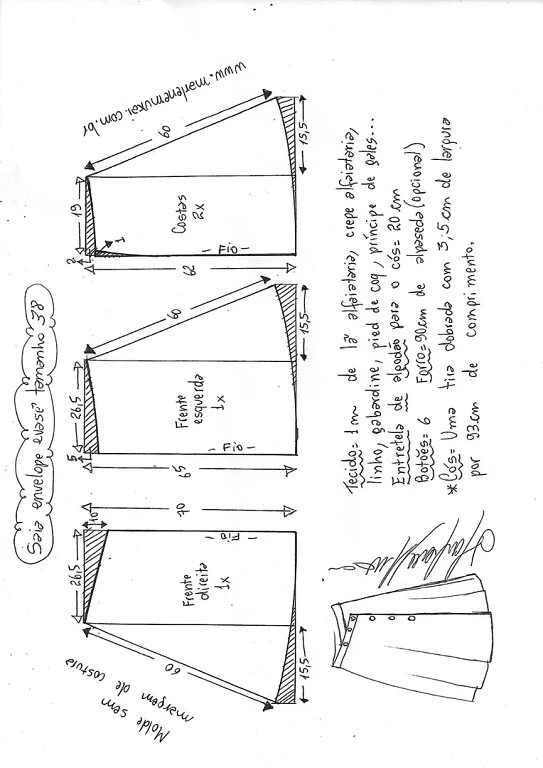 Saia envelope evasê tamanho 38
Molde sem
margem de costura
www.marlenemukai.com.br
26,5
10
70
Frente
direita
1x
Fio
60
15,5
26,5
5
65
Frente
esquerda
1x
- Fio -
60
15,5
19
2
1
62
Costas
2x
- Fio -
60
15,5
Tecido= 1m de lã alfaiataria, crepe alfaiataria,
linho, gabardine, pied de coq, príncipe de gales...
Entretela de algodão para o cós= 20 cm
Botões= 6 Forro=90cm de alpaseda (opcional)
*Cós= Uma tira dobrada com 3,5 cm de largura
por 93 cm de comprimento.